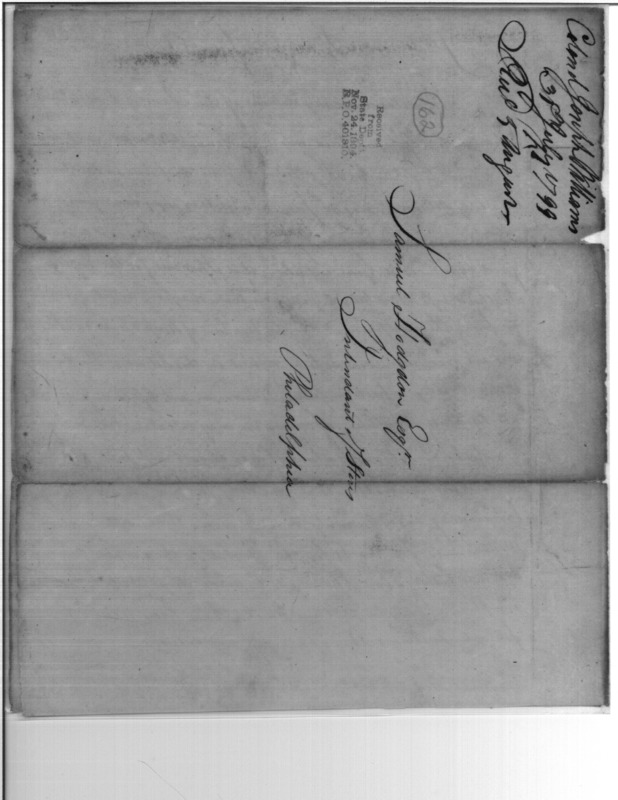 Colonel Joseph Williams
July 1799
Recd 5 August
162
Received
from
State Dept.
Nov. 24, 1894
R.P.O.
Samuel Hodgdon Esqr.
Intendant of Stores
Philadelphia